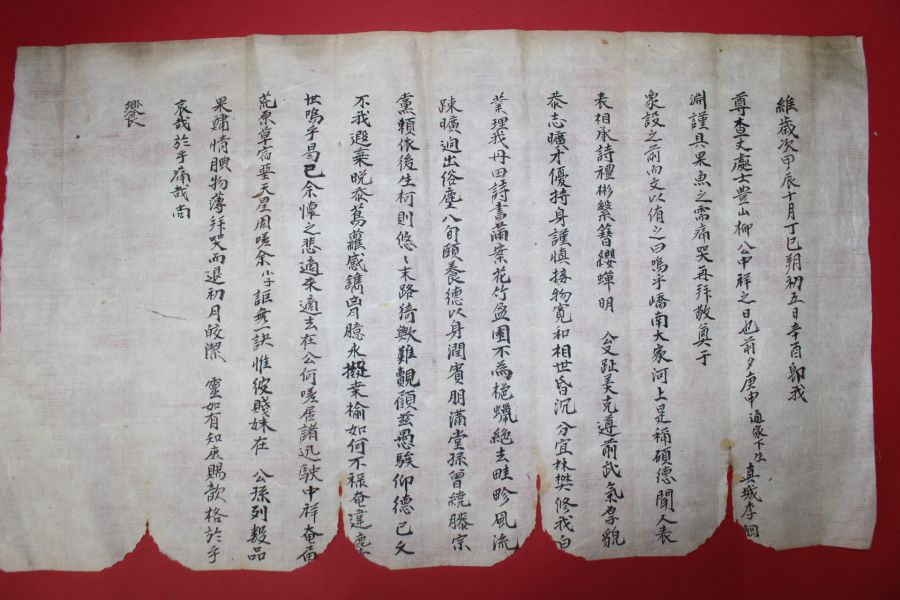 維歲次甲辰十月丁巳朔初五日辛酉卽我
尊查丈處士豊山柳公中祥之日也前夕庚申通家下生真城李
淵謹具果魚之需痛哭再拜敬奠于
象設之前而文以侑之曰嗚乎嶠南大家河上是稱碩德聞人表
表相承詩禮彬彬繁簪纓蟬明 公又趾美克遵前武氣厚貌
恭志曠才優持身謹慎接物寬和相世昏沉分宜林樊修我白
業理我丹田詩書滿案花竹盈園不為梔蠟絶去畦畛風流
踈曠逈出俗塵八旬頤養德以身潤賓朋滿堂孫曾繞膝宗
黨賴依後生柯則悠〻末路猗歟難覿顧玆愚騃仰德已久
不我遐棄晩忝蔦蘿感鐫胷臆永擬桑榆如何不祿奄違塵
世嗚乎曷已余懷之悲適來適去在公何嗟居諸迅駛中祥奄
荒原草宿要天星周嗟余小子詎無一訣惟彼賤妹在 公孫列殽品
果鏽情腆物薄拜哭而退初月皎潔 靈如有知庶賜歆格於乎
哀哉於乎痛哉尚
饗